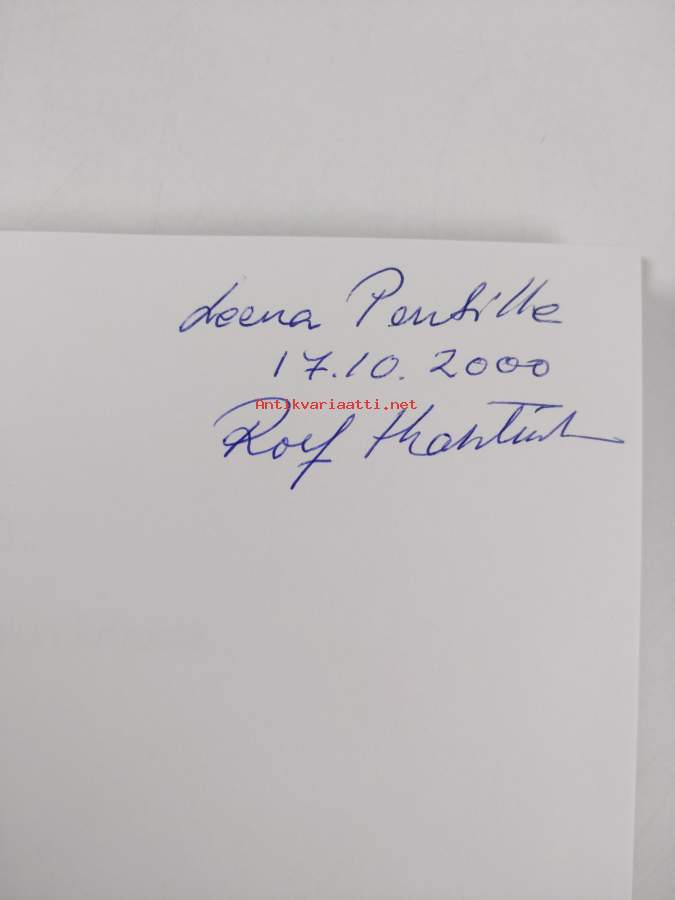 Leena Pentille
17.10.2000
Antikvariaatti.net
Rolf